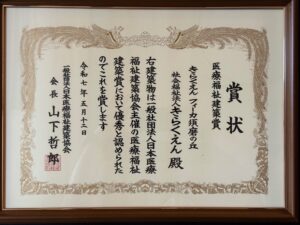 賞状
医療福祉建築賞
きらくえん フィーカ須磨の丘
社会福祉法人きらくえん 殿
右建築物は一般社団法人日本医療
福祉建築協会主催の医療福祉
建築賞において優秀と認められた
のでこれを賞します
令和七年五月十三日
一般社団法人日本医療福祉建築協会
会長 山下哲郎